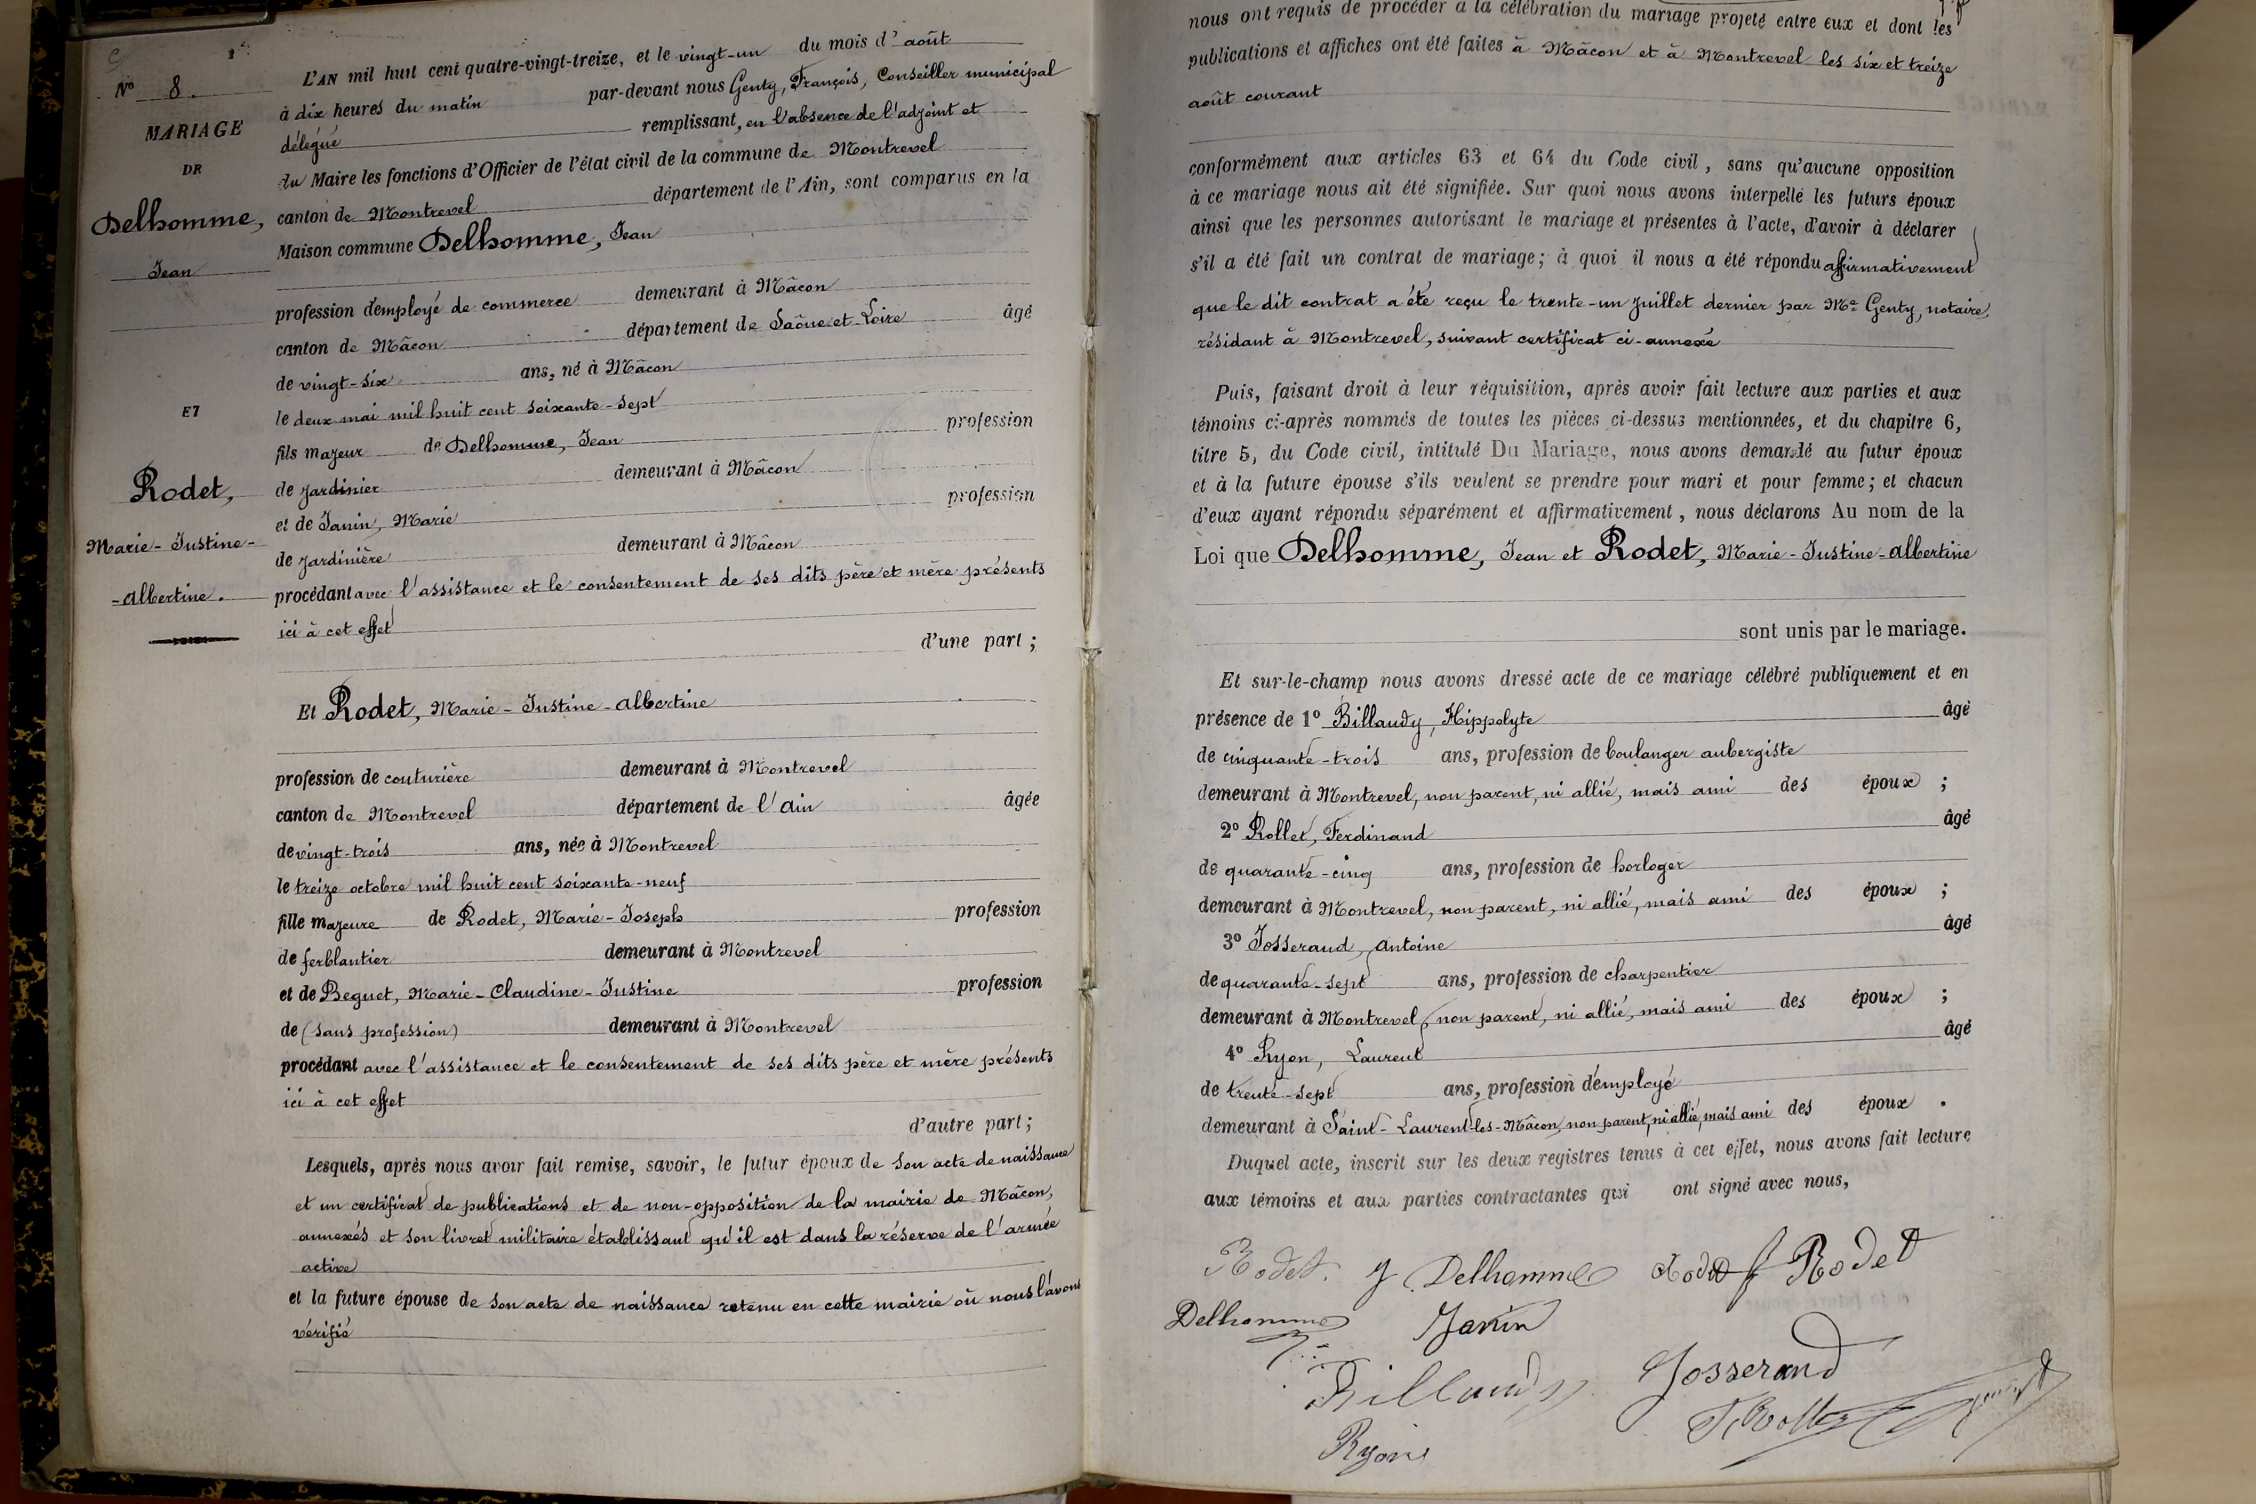 Nº 8.
MARIAGE
DE
Delhomme,
Jean
ET
Rodet,
Marie-Justine-
-Albertine.
L'AN mil huit cent quatre-vingt-treize, et le vingt-un du mois d'août
à dix heures du matin par-devant nous Genty, François, Conseiller municipal
délégué remplissant, en l'absence de l'adjoint et
du Maire les fonctions d'Officier de l'état civil de la commune de Montrevel
canton de Montrevel département de l'Ain, sont comparus en la
Maison commune Delhomme, Jean
profession d'employé de commerce demeurant à Mâcon
canton de Mâcon département de Saône-et-Loire âgé
de vingt-six ans, né à Mâcon
le deux mai mil huit cent soixante-sept
fils majeur de Delhomme, Jean profession
de jardinier demeurant à Mâcon
et de Janin, Marie profession
de jardinière demeurant à Mâcon
procédant avec l'assistance et le consentement de ses dits père et mère présents
ici à cet effet
d'une part ;
Et Rodet, Marie-Justine-Albertine
profession de couturière demeurant à Montrevel
canton de Montrevel département de l'Ain âgée
de vingt-trois ans, née à Montrevel
le treize octobre mil huit cent soixante-neuf
fille majeure de Rodet, Marie-Joseph profession
de ferblantier demeurant à Montrevel
et de Beguet, Marie-Claudine-Justine profession
de (sans profession) demeurant à Montrevel
procédant avec l'assistance et le consentement de ses dits père et mère présents
ici à cet effet
d'autre part ;
Lesquels, après nous avoir fait remise, savoir, le futur époux de son acte de naissance
et un certificat de publications et de non-opposition de la mairie de Mâcon,
annexés et son livret militaire établissant qu'il est dans la réserve de l'armée
active
et la future épouse de son acte de naissance retenu en cette mairie où nous l'avons
vérifié
nous ont requis de procéder à la célébration du mariage projeté entre eux et dont les
publications et affiches ont été faites à Mâcon et à Montrevel les six et treize
août courant
conformément aux articles 63 et 64 du Code civil, sans qu'aucune opposition
à ce mariage nous ait été signifiée. Sur quoi nous avons interpellé les futurs époux
ainsi que les personnes autorisant le mariage et présentes à l'acte, d'avoir à déclarer
s'il a été fait un contrat de mariage ; à quoi il nous a été répondu affirmativement
que le dit contrat a été reçu le trente-un juillet dernier par Me Genty, notaire,
résidant à Montrevel, suivant certificat ci-annexé
Puis, faisant droit à leur réquisition, après avoir fait lecture aux parties et aux
témoins ci-après nommés de toutes les pièces ci-dessus mentionnées, et du chapitre 6,
titre 5, du Code civil, intitulé Du Mariage, nous avons demandé au futur époux
et à la future épouse s'ils veulent se prendre pour mari et pour femme ; et chacun
d'eux ayant répondu séparément et affirmativement, nous déclarons Au nom de la
Loi que Delhomme, Jean et Rodet, Marie-Justine-Albertine
sont unis par le mariage.
Et sur-le-champ nous avons dressé acte de ce mariage célébré publiquement et en
présence de 1º Billaudy, Hippolyte âgé
de cinquante-trois ans, profession de boulanger aubergiste
demeurant à Montrevel, non parent, ni allié, mais ami des époux ;
2º Rollet, Ferdinand âgé
de quarante-cinq ans, profession de horloger
demeurant à Montrevel, non parent, ni allié, mais ami des époux ;
3º Josserand, Antoine âgé
de quarante-sept ans, profession de charpentier
demeurant à Montrevel, non parent, ni allié, mais ami des époux ;
4º Ryon, Laurent âgé
de trente-sept ans, profession d'employé
demeurant à Saint-Laurent-les-Mâcon, non parent, ni allié, mais ami des époux .
Duquel acte, inscrit sur les deux registres tenus à cet effet, nous avons fait lecture
aux témoins et aux parties contractantes qui ont signé avec nous,
Rodet. J Delhomme Rodet
Delhomme Janin
Billaudy Josserand
Ryon